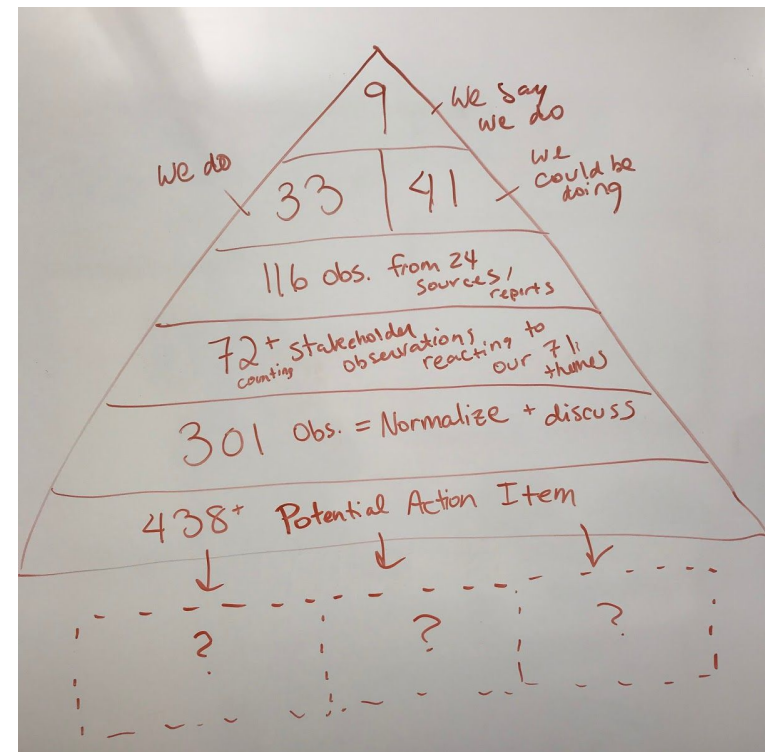 9
We say
we do
we do
33 41
we
could be
doing
116 obs. from 24
sources/
reports
72+ stakeholder
counting
observations
reacting to
our 71
themes
301 Obs. = Normalize + discuss
438+ Potential Action Item
? ? ?